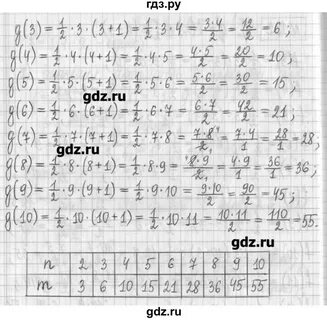 гдз.ru
g(3) = 1/2 · 3 · (3+1) = 1/2 · 3 · 4 = 3·4/2 = 12/2 = 6 ;
g(4) = 1/2 · 4 · (4+1) = 1/2 · 4 · 5 = 4·5/2 = 20/2 = 10 ;
g(5) = 1/2 · 5 · (5+1) = 1/2 · 5 · 6 = 5·6/2 = 30/2 = 15 ,
gdz.ru
gdz.ru
g(6) = 1/2 · 6 · (6+1) = 1/2 · 6 · 7 = 6·7/2 = 42/2 = 21 ;
g(7) = 1/2 · 7 · (7+1) = 1/2 · 7 · 8 = 7·8⁴/2₁ = 7·4/1 = 28/1 = 28 ;
g(8) = 1/2 · 8 · (8+1) = 1/2 · 8 · 9 = ⁴8·9/2₁ = 4·9/1 = 36/1 = 36 ;
gdz.ru
g(9) = 1/2 · 9 · (9+1) = 1/2 · 9 · 10 = 9·10/2 = 90/2 = 45 ;
g(10) = 1/2 · 10 · (10+1) = 1/2 · 10 · 11 = 10·11/2 = 110/2 = 55.
gdz.ru
gdz.ru
n 2 3 4 5 6 7 8 9 10
m 3 6 10 15 21 28 36 45 55
gdz.ru